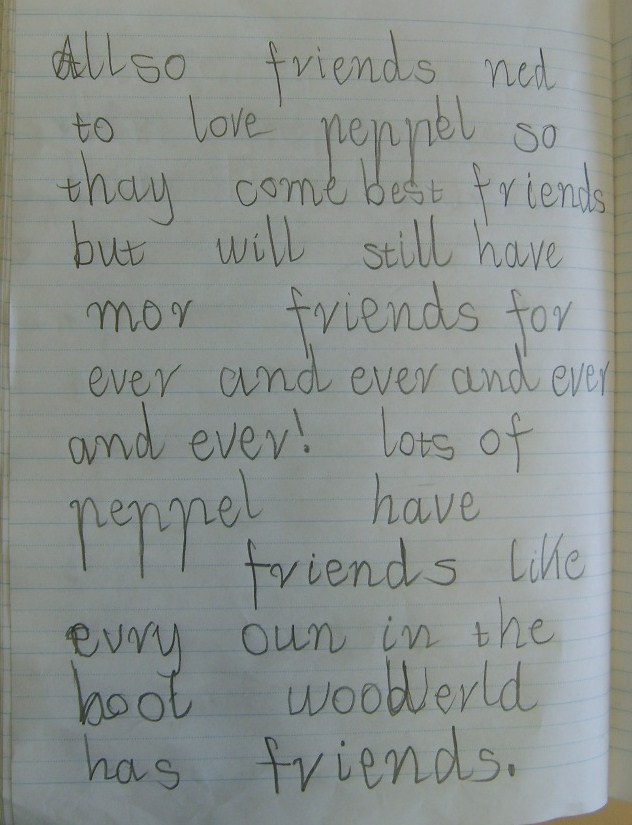 Allso friends ned
to love peppel so
thay come best friends
but will still have
mor friends for
ever and ever and ever
and ever! lots of
peppel have
friends like
evry oun in the
hoot
has friends.